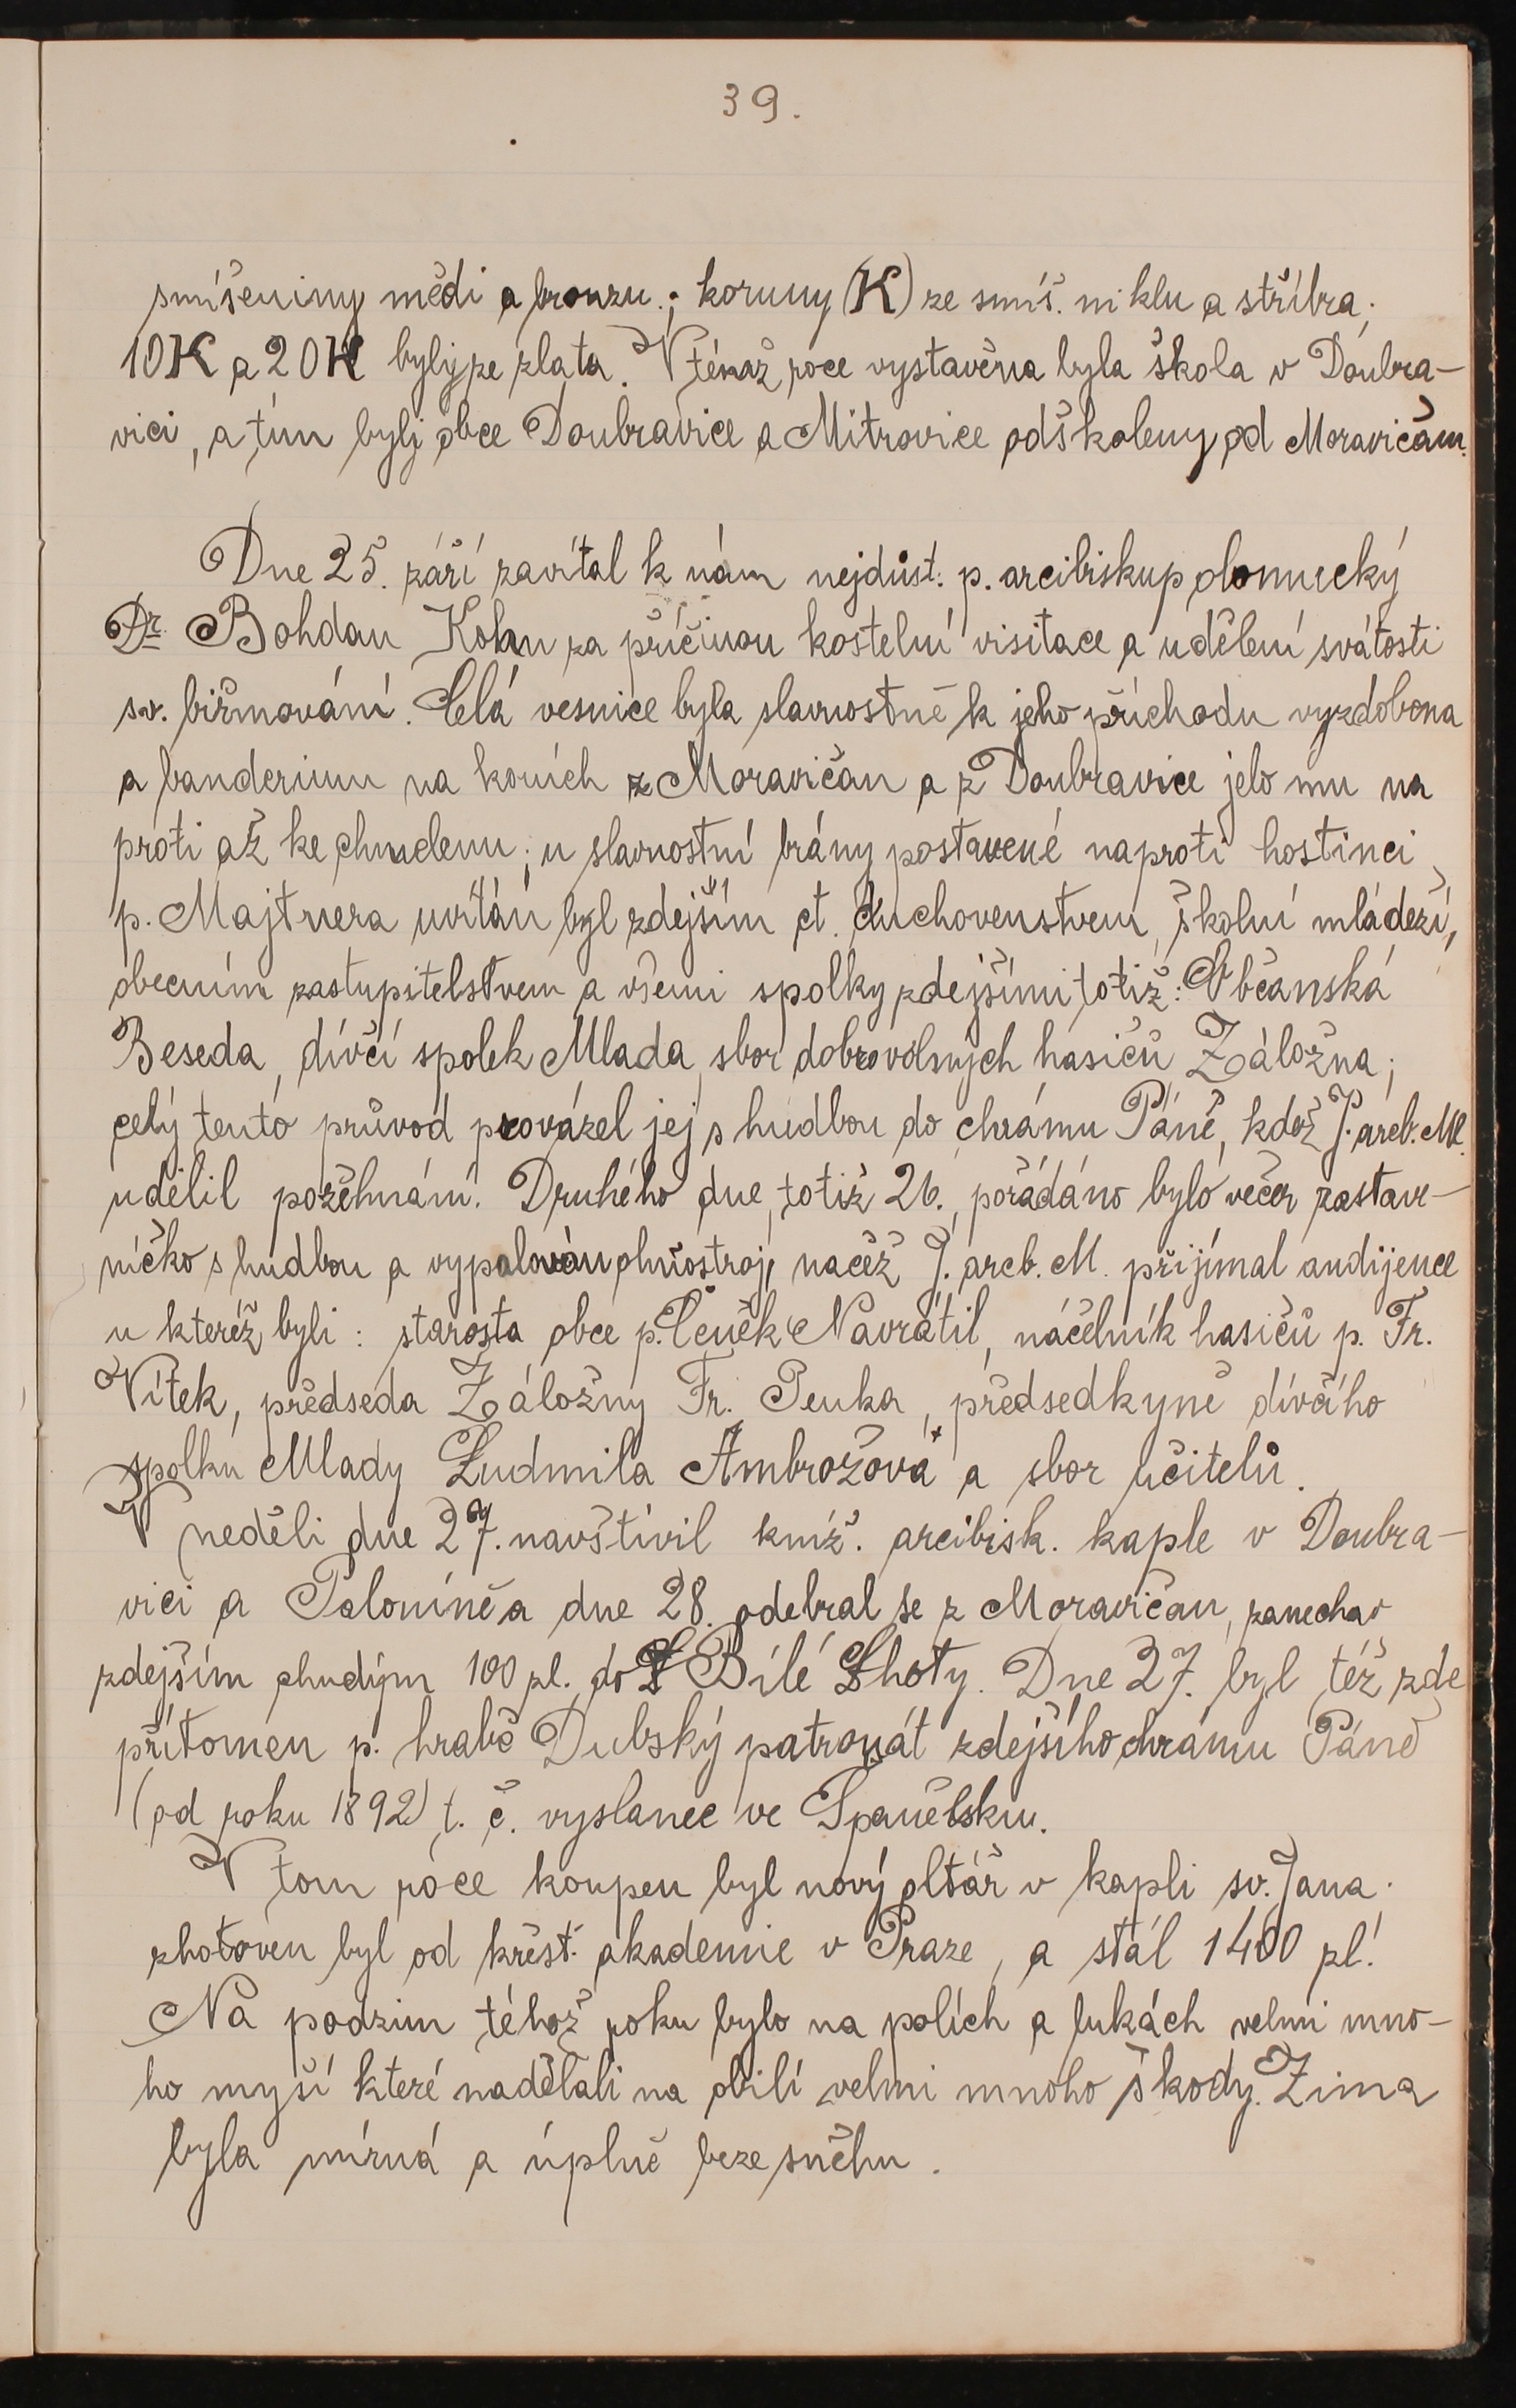 39.
smíšeniny mědi a bronzu.; koruny (K) ze smíš. niklu a stříbra;
10K a 20K byly ze zlata. V témž roce vystavěna byla škola v Doubra-
vici, a tím byly obce Doubravice a Mitrovice odškoleny od Moravičan.
Dne 25. září zavítal k nám nejdůst. p. arcibiskup olomucký
Dr. Bohdan Kohn za příčinou kostelní visitace a udělení svátosti
sv. biřmování. Celá vesnice byla slavnostně k jeho příchodu vyzdobena
a banderium na koních z Moravičan a z Doubravice jelo mu na
proti až ke
; u slavnostní brány postavené naproti hostinci
p. Majtnera uvítán byl zdejším ct. duchovenstvem, školní mládeží,
obecním zastupitelstvem a všemi spolky zdejšími totiž: Občanská
Beseda, dívčí spolek Mlada, sbor dobrovolných hasičů Záložna;
celý tento průvod provázel jej s hudbou do chrámu Páně, kdež J. arcb. M.
udělil požehnání. Druhého dne, totiž 26., pořádáno bylo večer zastave-
níčko s hudbou a vypalován ohňostroj, načež J. arcb. M. přijímal audijence
u kteréž byli: starosta obce p. Čeněk Navrátil, náčelník hasičů p. Fr.
Vítek, předseda Záložny Fr. Penka, předsedkyně dívčího
spolku Mlady Ludmila Ambrožova a sbor učitelů.
V neděli dne 27. navštívil kníž. arcibisk. kaple v Doubra-
vici a Poloníně a dne 28. odebral se z Moravičan, zanechav
zdejším chudým 100 zl. do Bílé Lhoty. Dne 27. byl též zde
přítomen p. hrabě Dubský patronát zdejšího chrámu Páně
(od roku 1892) t. č. vyslanec ve Španělsku.
V tom roce koupen byl nový oltář v kapli sv. Jana.
zhotoven byl od křesť. akademie v Praze, a stál 1400 zl.
Na podzim téhož roku bylo na polích a lukách velmi mno-
ho myší které nadělali na obilí velmi mnoho škody. Zima
byla mírná a úplně beze sněhu.